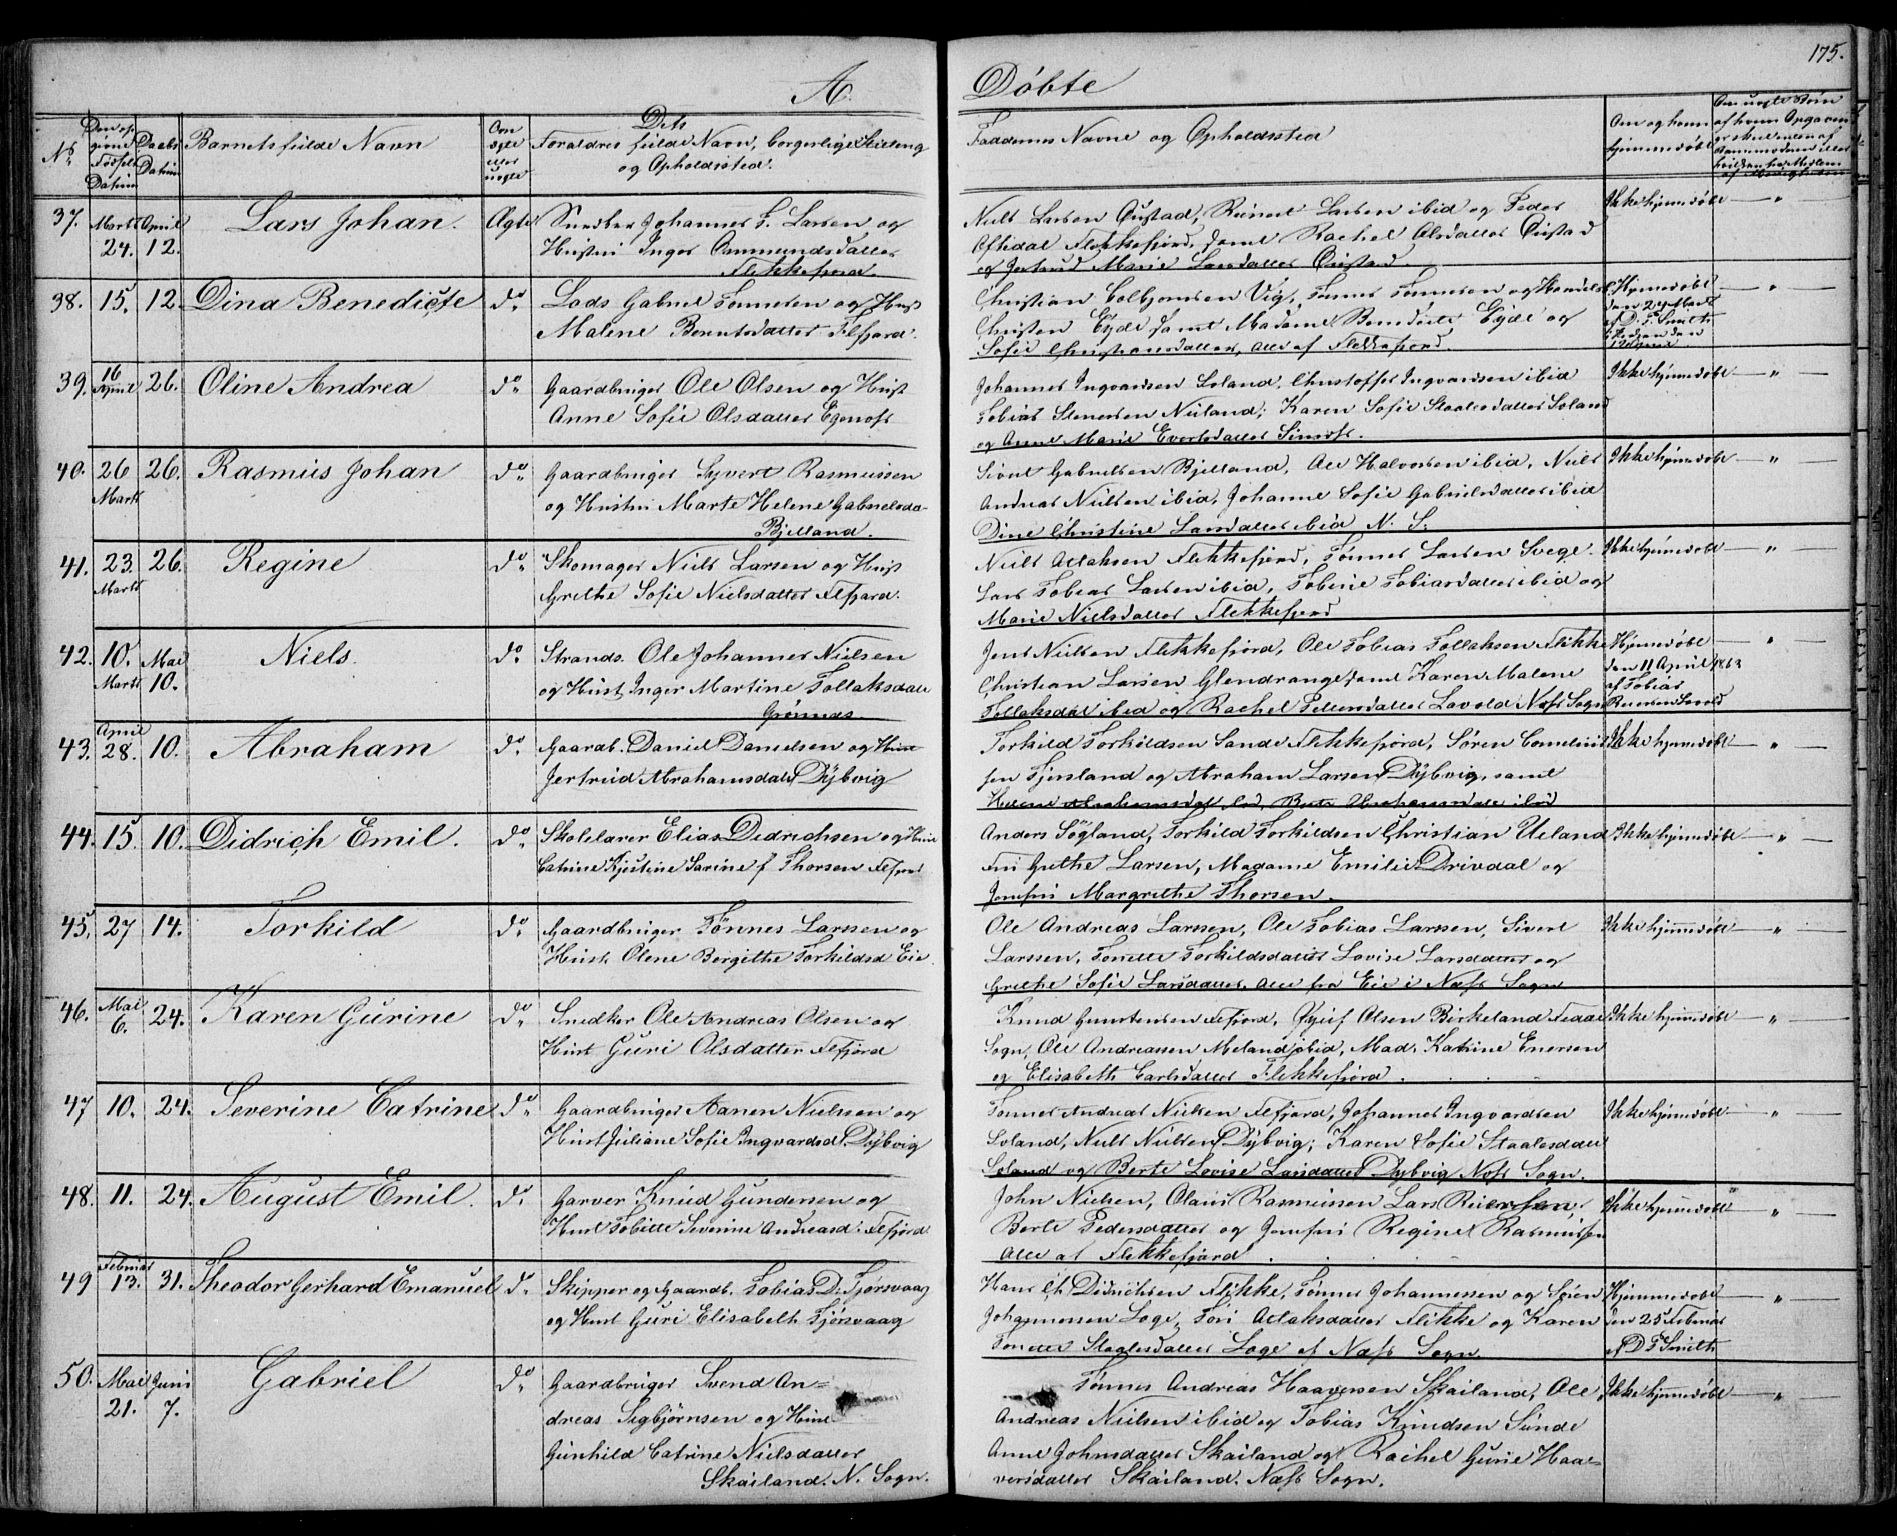 175.
A. Döbte
No
Barnets fulde Navn
Dets
Forældres fulde Navn, borgerlige Stilling
og Opholdssted.
Faddernes Navne og Opholdssted
Om og hvem
hjemmedøbt
37. Marts 24. April 12. Lars Johan. Ægte Snedker Johannes F. Larsen og
Hustru Inger Ommundsdatter
Flekkefjord.
Niels Larsen Øustad, Reinert Larsen ibid og Peder
Flekkefjord, samt Rachel Olsdatter Øustad
og Jertrud Marie Larsdatter Øustad.
Ikke hjemmedøbt — " —
38. 15. 12. Dina Benedicte do Lods Gabriel Tønnesen og Hust
Malene Berntsdatter Flfjord.
Christian Colbjørnsen Vig, Tønnes Tønnesen og
Christen Eyde samt Madame Benedicte Eyde og
Sofie Christiansdatter, alle af Flekkefjord.
Hjemmedøbt
39. 16 April 26. Oline Andrea do Gaardbruger Ole Olsen og Hust
Anne Sofie Olsdatter Egenofs
Johannes Ingvardsen Loland, Christoffer Ingvardsen ibid
Tobias Stenersen Nuland; Karen Sofie Staalesdatter Loland
og Anne Marie Evertsdatter
Ikke hjemmedøbt — " —
40. 26 Marts 26. Rasmus Johan do Gaardbruger Syvert Rasmussen
og Hustru Marte Helene Gabrielsda-
Bjelland.
Sivert Gabrielsen Bjelland, Ole Halvorsen ibid, Niels
Andreas Nielsen ibid, Johanne Sofie Gabrielsdatter ibid
Dine Christine Larsdatter ibid N. S.
Ikke hjemmedøbt — " —
41. 23. Marts 26. Regine do Skomager Niels Larsen og Hust
Grethe Sofie Nielsdatter Flfjord.
Niels Aslaksen Flekkefjord, Tønnes Larsen Svege
Lars Tobias Larsen ibid, Tobine Tobiasdatter ibid og
Marie Nielsdatter Flekkefjord
Ikke hjemmedøbt — " —
42. 10. Marts Mai 10. Niels. do Strands. Ole Johannes Nielsen
og Hust Inger Martine Tollaksdatt
Grønnes.
Jens Nielsen Flekkefjord, Ole Tobias Tollaksen Flikke
Christian Larsen Glendrange samt Karen Malene
Tollaksdat ibid og Rachel Pedersdatter Lavold Næss Sogn
Hjemmedøbt
den 11 April 1863
af Tobias
43. April 28. 10. Abraham do Gaardb. Daniel Danielsen og Hust
Jertrud Abrahamsdatter Dybvig
Torkild Torkildsen Sande Flekkefjord, Søren Cornelius
sen Fjorsland og Abraham Larsen Dybvig, samt
Helene Abrahamsdat ibid, Berte Abrahamsdatt ibid
Ikke hjemmedøbt — " —
44. 15. 10. Didrich Emil. do Skolelærer Elias Didrichsen og Hust
Catrine Kjestine Sarine f. Thorsen Flfjord
Anders Søgland, Torkild Torkildsen Christian Ueland
Fru Grethe Larsen, Madame Emilie Drivdal og
Jomfru Margrethe Thorsen.
Ikke hjemmedøbt — " —
45. 27 14. Torkild do Gaardbruger Tönnes Larssen og
Hust. Olene Borgithe Torkildsd Eie
Ole Andreas Larssen, Ole Tobias Larssen, Sivert
Larssen, Tonette Torkildsdatter Lovise Larsdatter og
Grethe Sofie Larsdatter, alle fra Eie i Næss Sogn
Ikke hjemmedøbt — " —
46. Mai 6. 24. Karen Gurine do Snedker Ole Andreas Olsen og
Hust Guri Olsdatter Flfjord
Knud Gunstensen Flfjord, Olsen Birkeland Fedde
Sogn, Ole Andreassen Meland ibid, Mad. Katrine Enersen
og Elisabeth Carlsdatter Flekkefjord.
Ikke hjemmedøbt — " —
47 10. 24. Severine Catrine do Gaardbruger Aanen Nielssen og
Hust Juliane Sofie Ingvardsd. Dybvig
Tønnes Andreas Nielsen Flfjord, Johannes Ingvardsen
Loland, Niels Nielsen Dybvig; Karen Sofie Staalesdatt
Loland og Berte Lovise Larsdatter Dybvig Næss Sogn.
Ikke hjemmedøbt — " —
48. 11. 24. August Emil. do Garver Knud Gundersen og
Hust Tobitte Severine Andreasd. Flfjord
John Nielsen, Olaus Rasmussen Lars Reiersen,
Berte Pedersdatter og Jomfru Regine Rasmussen
alle af Flekkefjord.
Ikke hjemmedøbt — " —
49 Februar 13. 31. Theodor Gerhard Emanuel do Skipper og Gaardb. Tobias D. Fjørsvaag
og Hust Guri Elisabeth Fjørsvaag
Hans Ch Didrichsen Flikke, Tønnes Johannessen og Søren
Johannessen Loge, Siri Aslaksdatter Flikke og Karen
Tonette Staalesdatter Loge af Næss Sogn.
Hjemmedøbt
den 25 Februar
af D. Smith
50. Mai 21. Juni 7. Gabriel do Gaardbruger Svend An=
dreas Sigbjørnsen og Hust
Gunhild Catrine Nielsdatter
Skailand. N. Sogn.
Tønnes Andreas Haaversen Skailand, Ole
Andreas Nielsen ibid og Tobias Knudsen Sunde
Anne Johnsdatter Skailand og Rachel Gurie Haa=
versdatter Skailand. Næss Sogn.
Ikke hjemmedøbt — " —